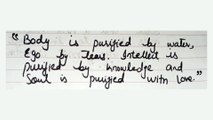 "Body is purified by water,
Ego by Tears. Intellect is
purified by knowledge and
Soul is purified with love."